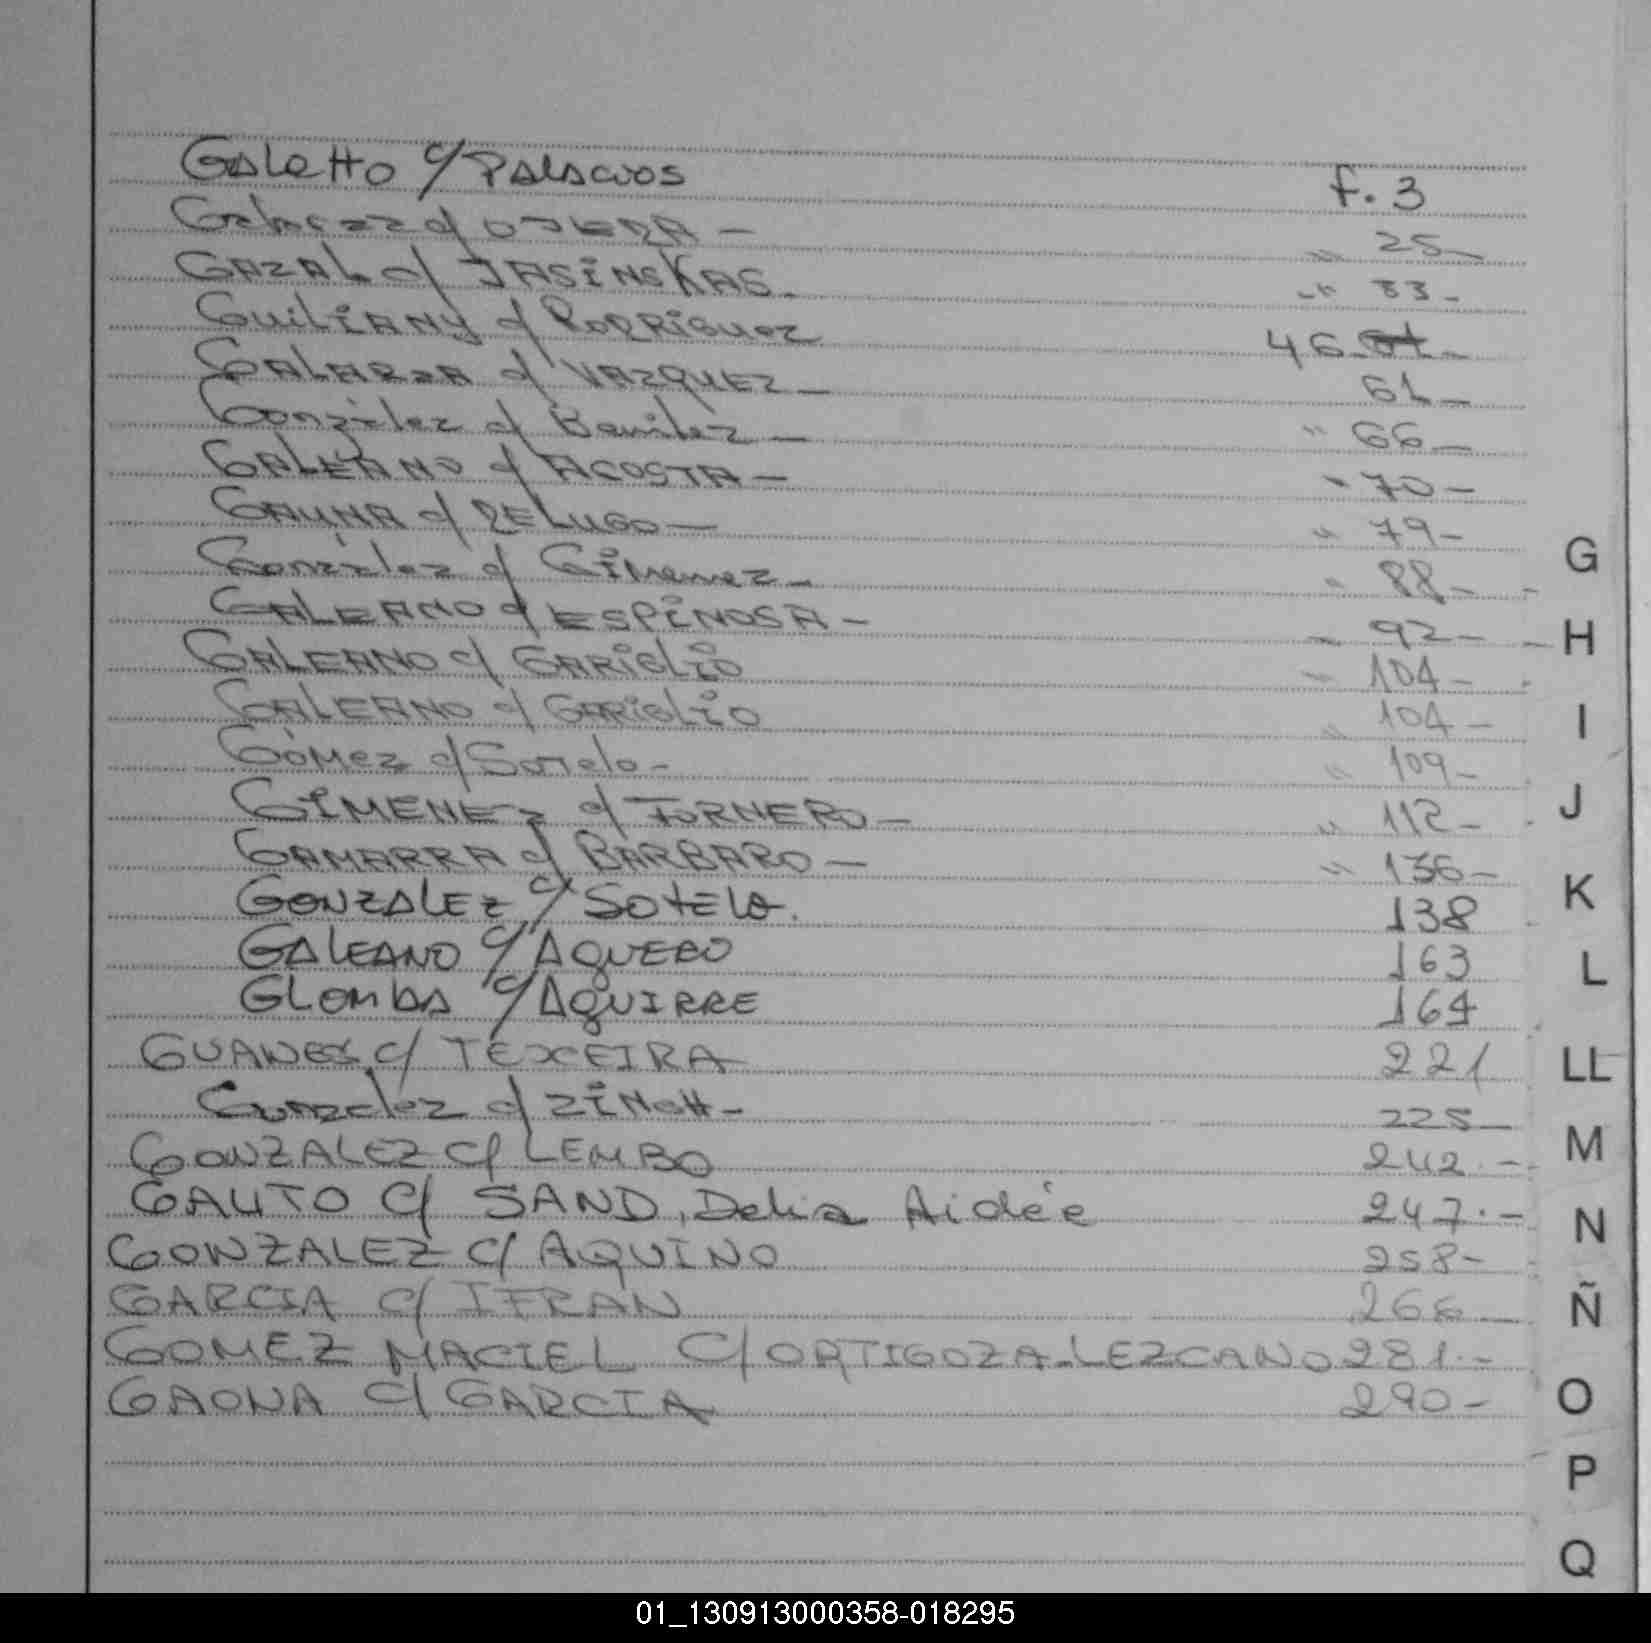 Galetto c/ Palacios f. 3
c/ OJEDA - " 25-
GAZAL c/ JASINSKAS. " 33-
GUILIANY c/ RODRIGUEZ 46-
GALARZA c/ VAZQUEZ- 61-
González c/ Benitez- " 66-
GALEANO c/ ACOSTA- " 70-
GAUNA c/ DELUGO- " 79-
González c/ Gimenez- " 88-
GALEANO c/ ESPINOSA- " 92-
GALEANO c/ GARIGLIO " 104-
GALEANO c/ GARIGLIO " 104-
Gómez c/ Sotelo- " 109-
GIMENEZ c/ FORNERO- " 112-
GAMARRA c/ BARBARO- " 136-
GONZALEZ c/ SOTELO. 138
GALEANO c/ AQUERO 163
GLOMBA c/ AQUIRRE 164
c/ TEXEIRA 221
Gonzalez c/ 225-
GONZALEZ c/ LEMBO 242.-
GAUTO c/ SAND, Delia Aidée 247.-
GONZALEZ c/ AQUINO 258-
GARCIA c/ IFRAN 266-
GOMEZ MACIEL C/ ORTIGOZA-LEZCANO 281.-
GAONA c/ GARCIA 290-
G
H
I
J
K
L
LL
M
N
Ñ
O
P
Q
01_130913000358-018295